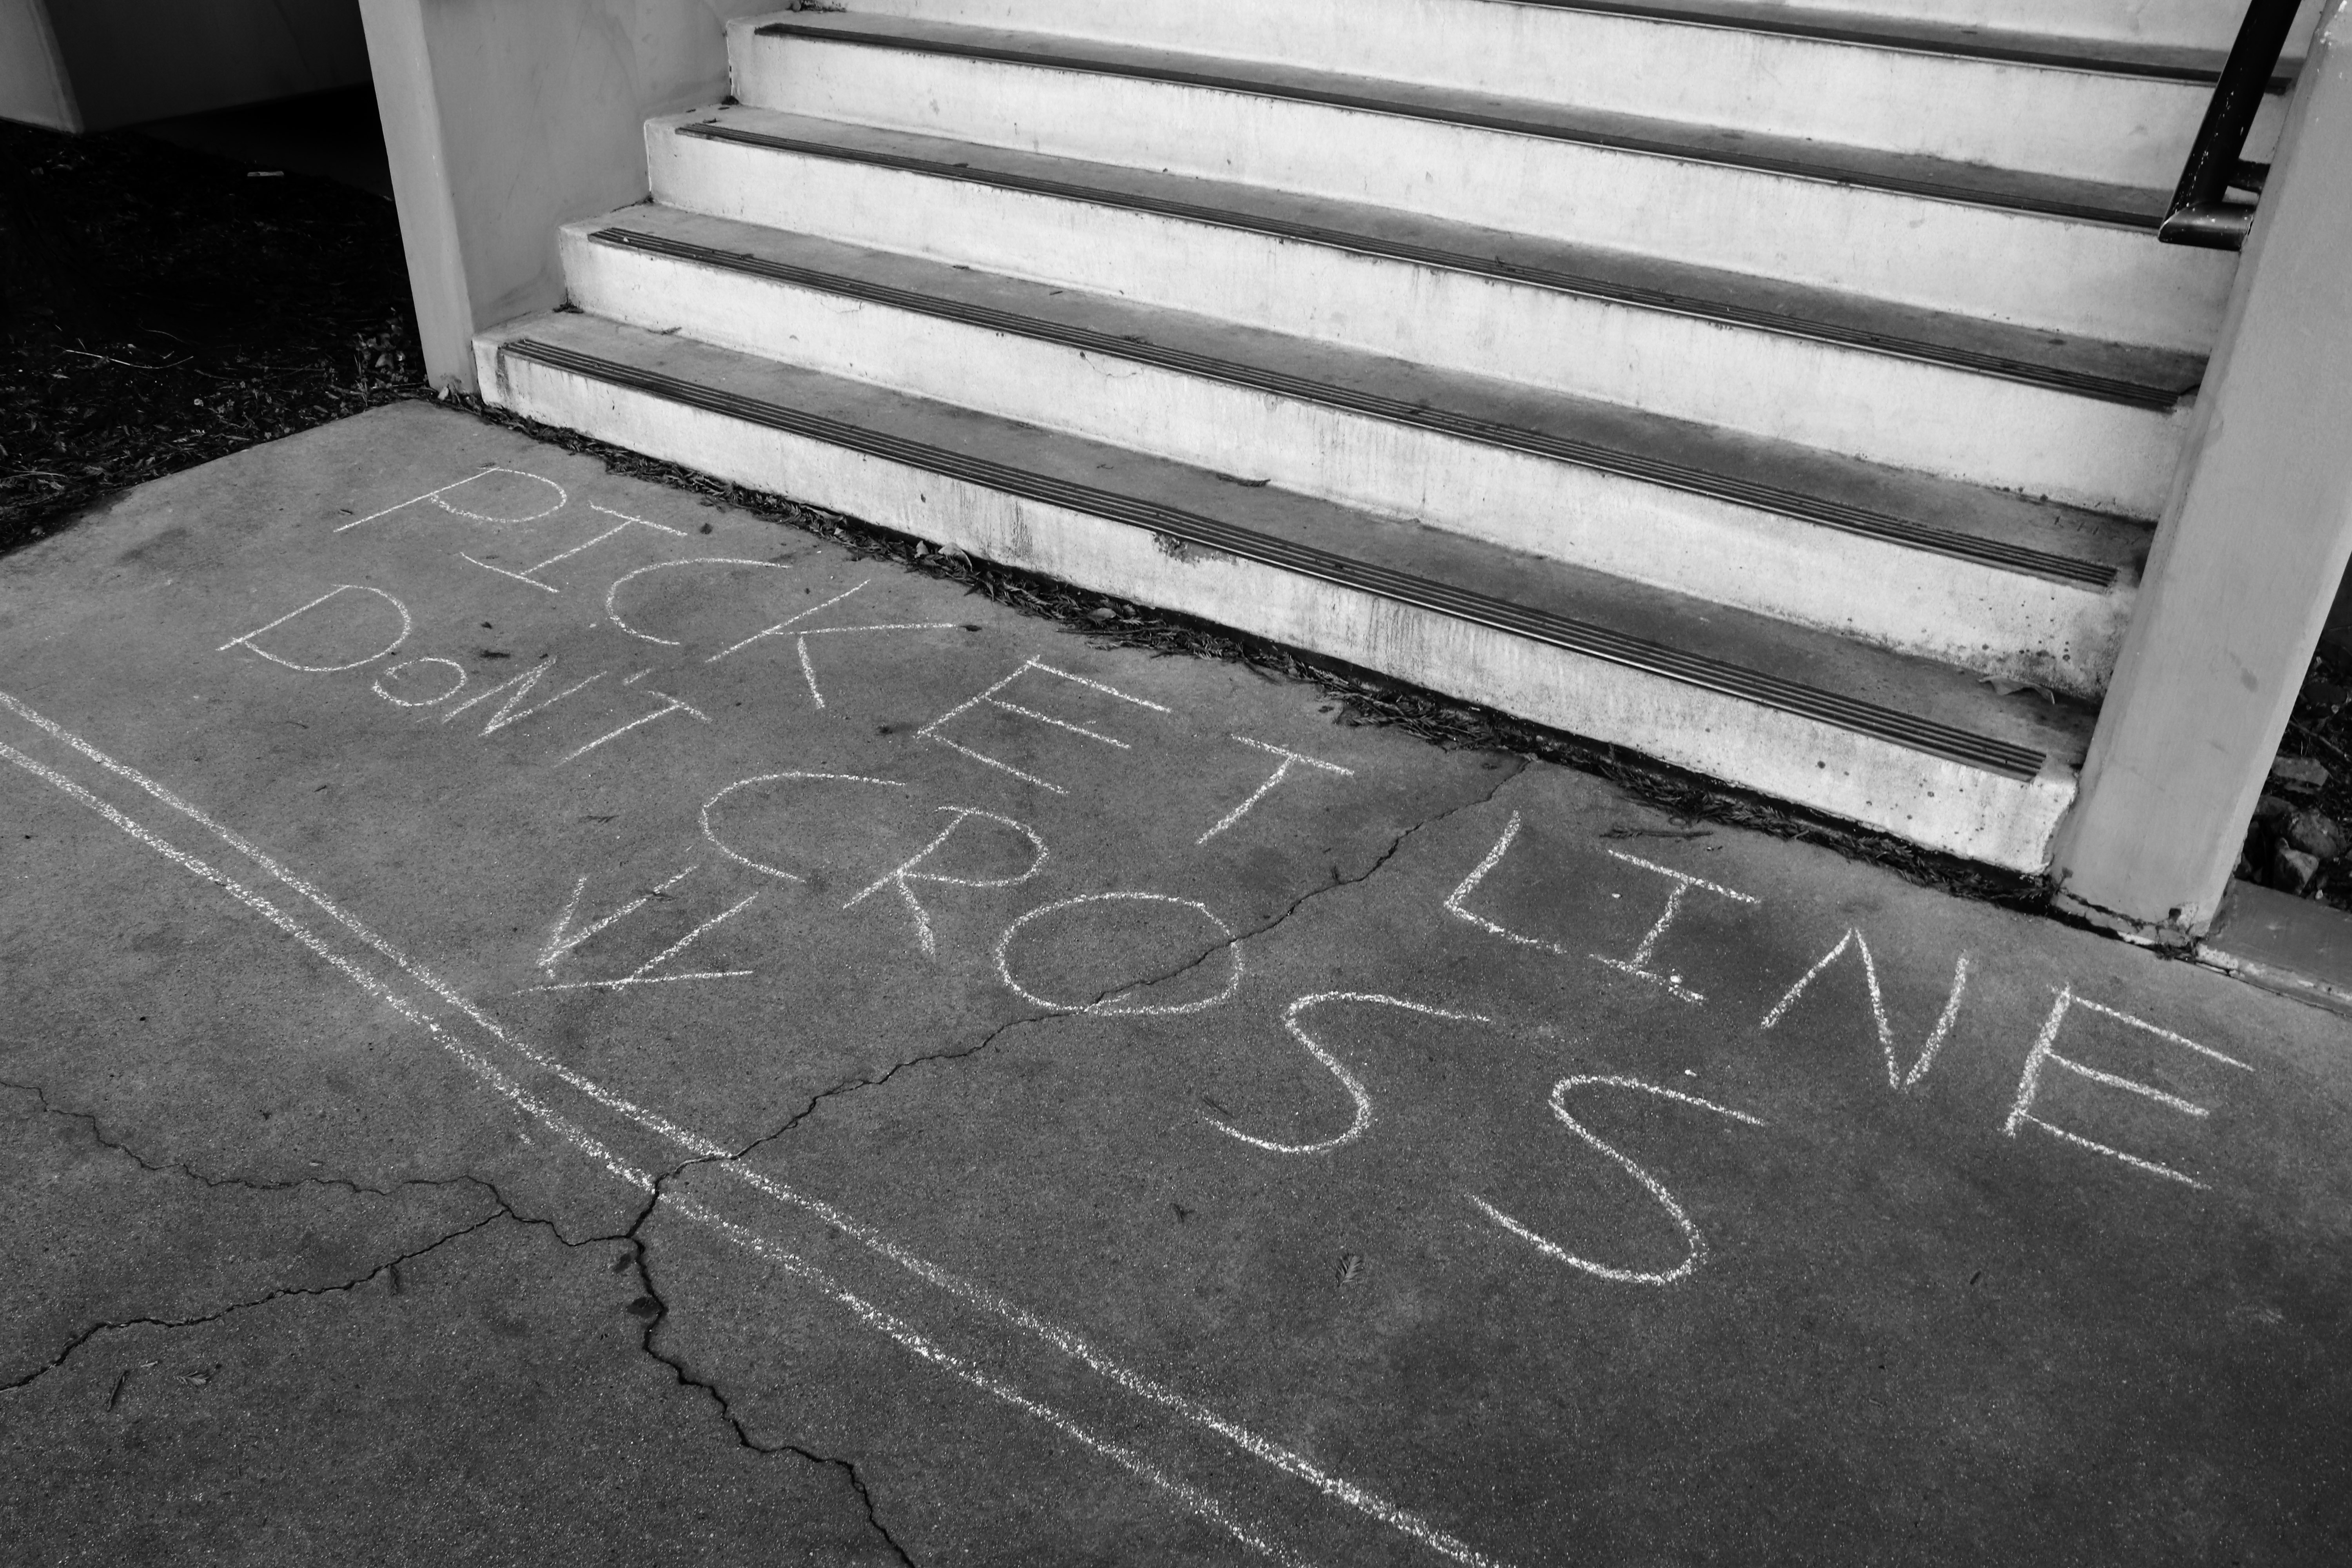 PICKET LINE
DON'T CROSS